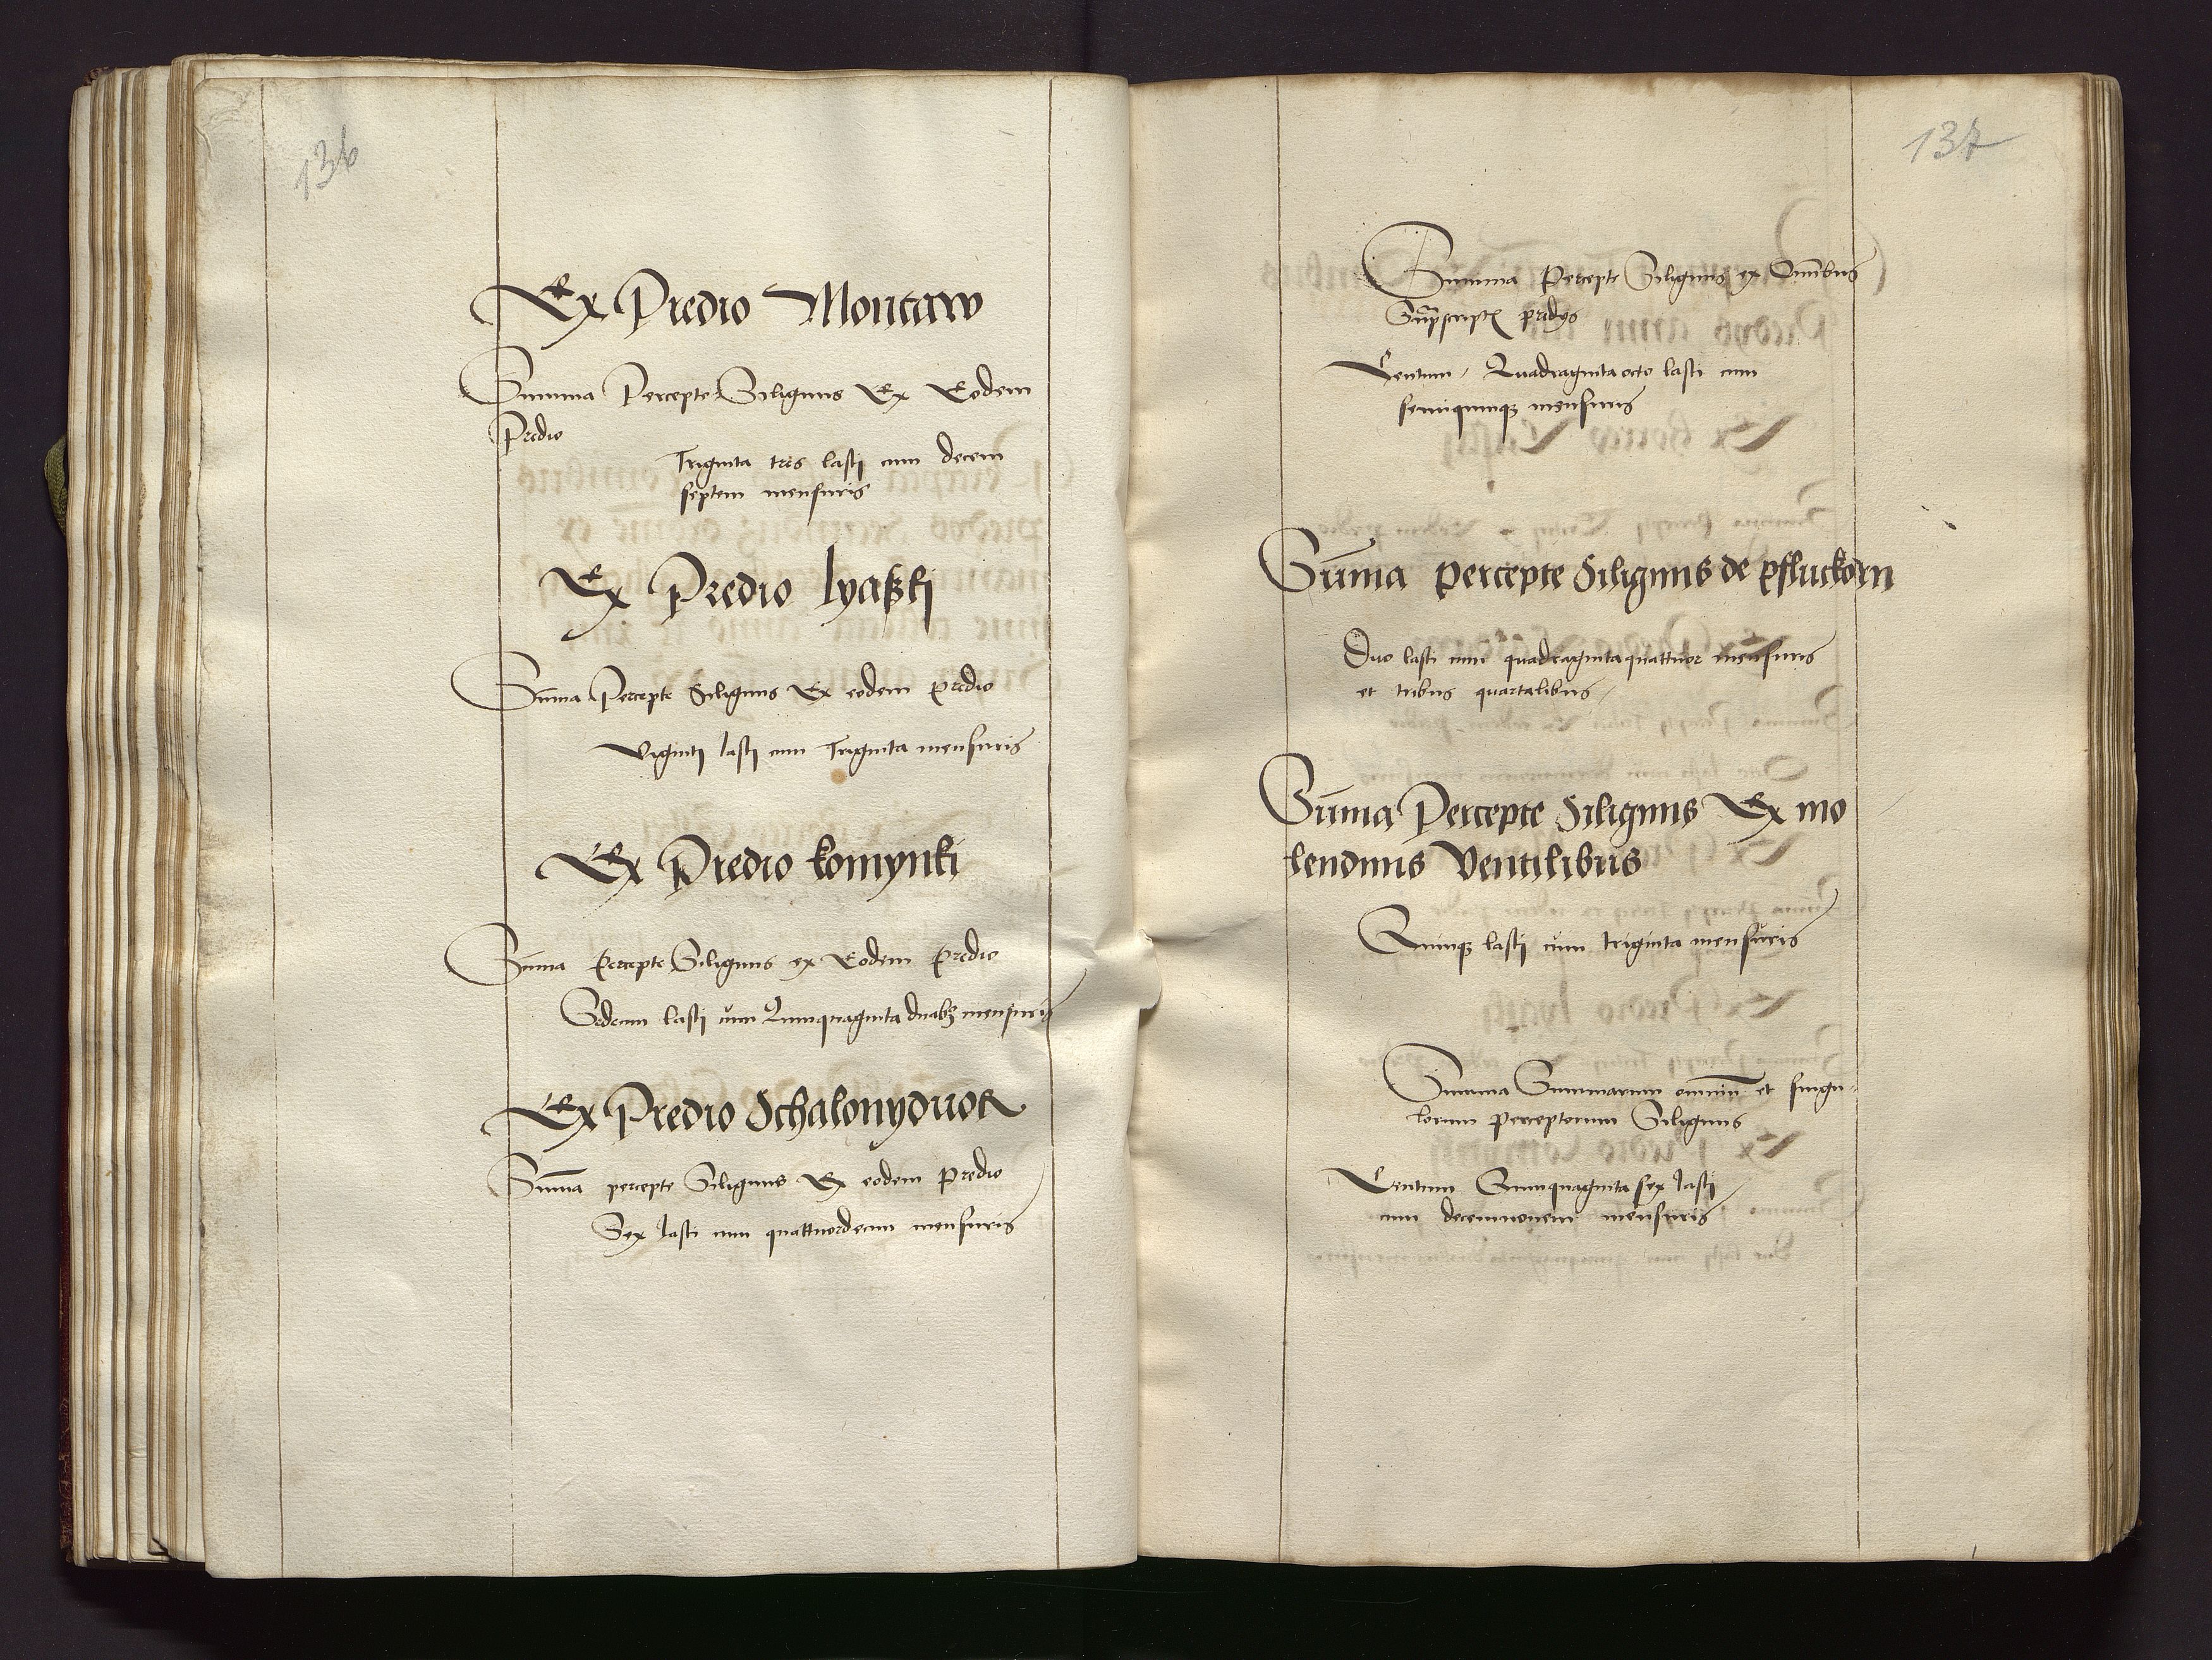 136
Ex Predio Montaw
Summa Percepte Siliginis Ex Eodem
Predio
Triginta tres lasti cum decem
septem mensuris
Ex Predio lyaßki
Sum̄a Percepte Siliginis Ex eodem predio
Viginti lasti cum Triginta mensuris
Ex Predio komynki
Sum̄a Percepte Siliginis ex Eodem Predio
Sedecim lasti cum Quinquaginta duabꝫ mensuris
Ex Predio Schalonyduor
Sum̄a percepte Siliginis Ex eodem Predio
Sex lasti cum quattuordecim mensuris
137
Summa Percepte Siliginis ex Om̄ibus
Sup̄scriptꝭ predys
Centum Quadragintaocto lasti cum
semiquinqꝫ mensuris
Sum̄a percepte Siliginis de pfluckorn
Duo lasti cum quadragintaquattuor mensuris
et tribus quartalibus
Sum̄a Percepte Siliginis Ex mo
lendinis Ventilibus
Quinqꝫ lasti cum triginta mensuris
Summa Summarum omniū et singu-
lorum perceptorum Siliginis
Centum Quinquaginta sex lasti
cum decemnouem mensuris